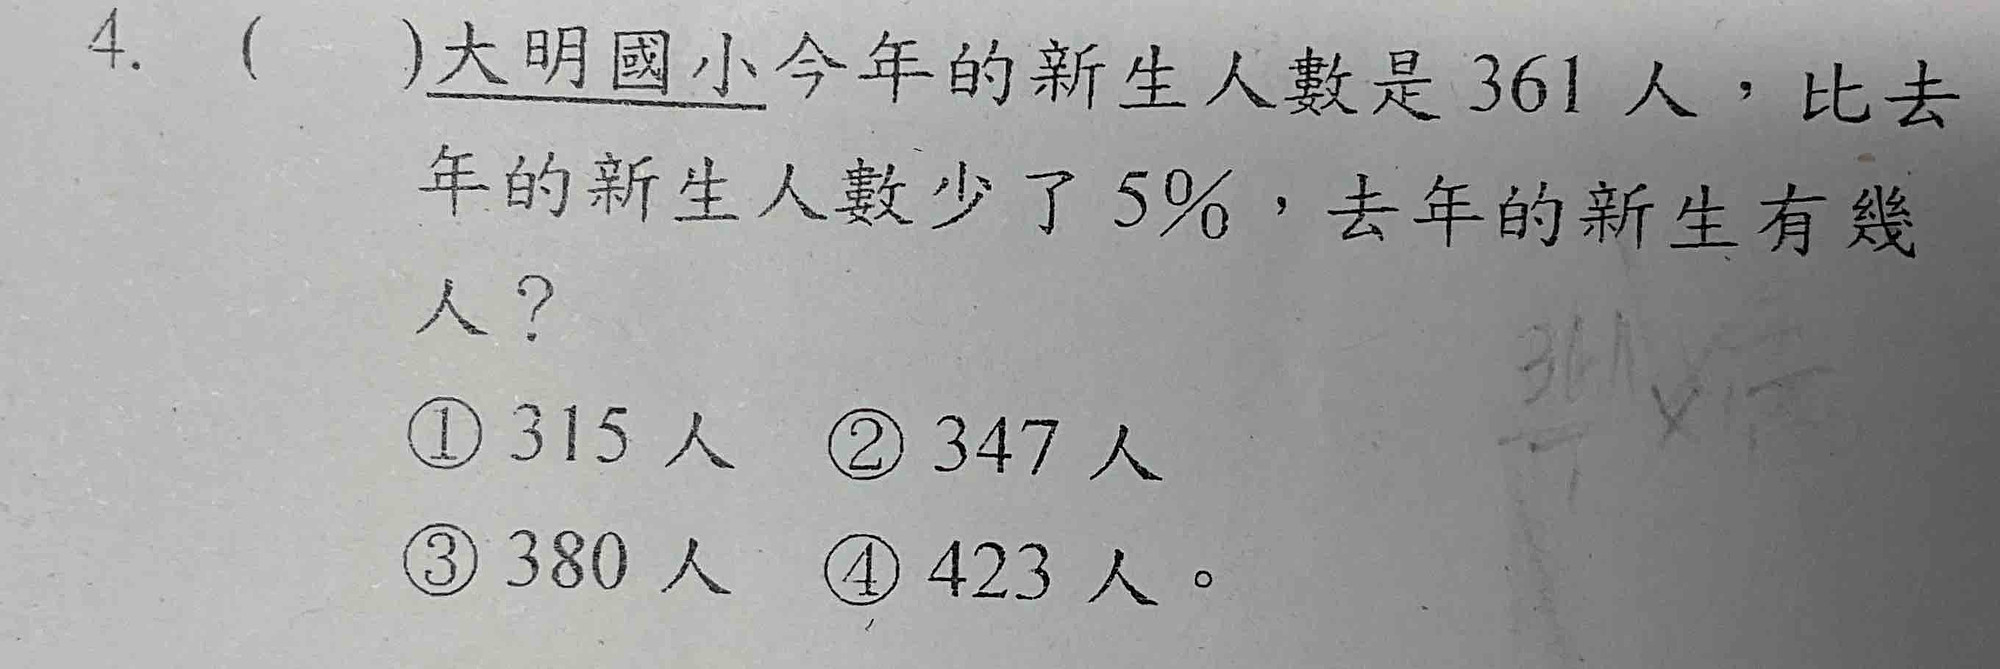 4. (    )大明國小今年的新生人數是 361 人，比去
年的新生人數少了 5%，去年的新生有幾
人？
① 315 人 ② 347 人
③ 380 人 ④ 423 人。